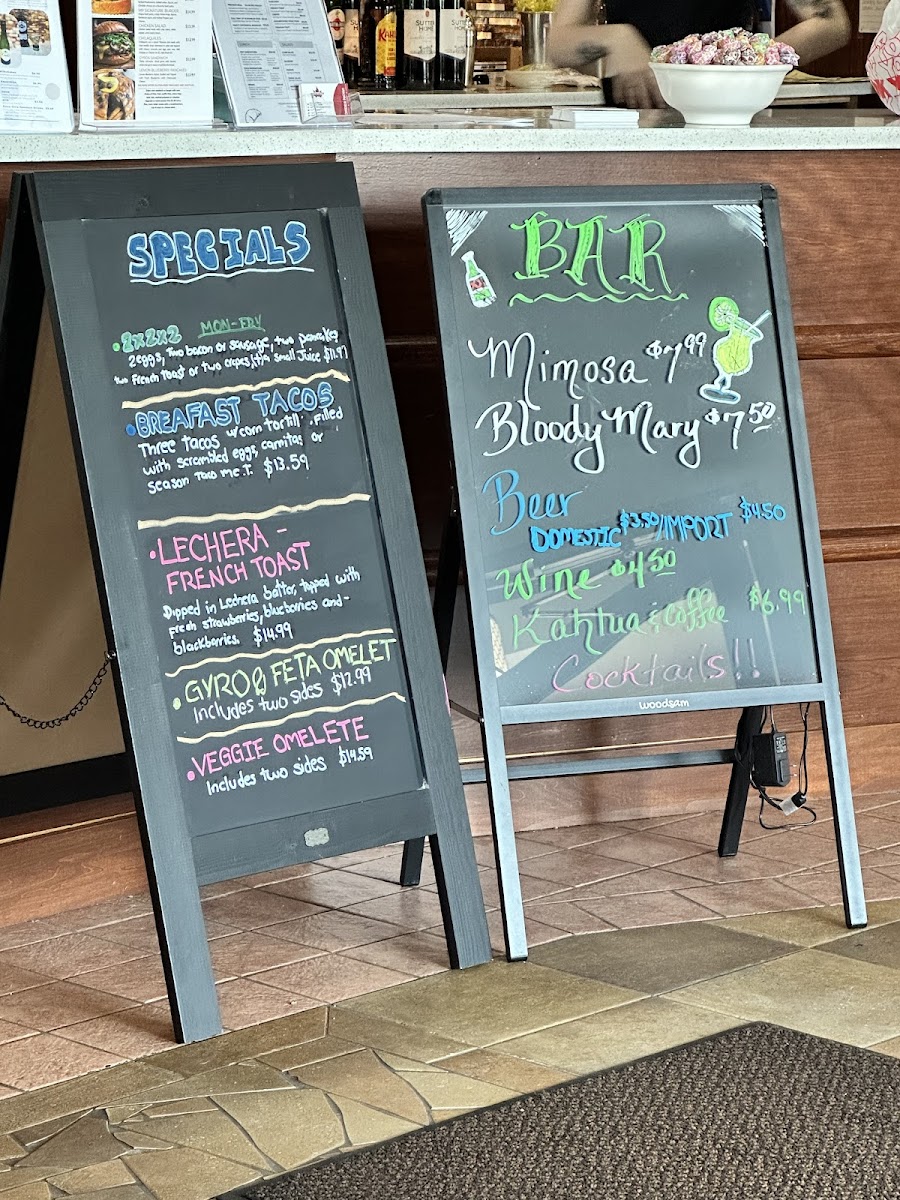 SPECIALS
2x2x2 MON-FRY
2 eggs, two bacon or sausage, two pancakes
two French Toast or two crepes, small Juice $11.
BREAFAST TACOS
Three tacos w/corn tortill. Filled
with scrambled eggs, carnitas or
season $13.59
LECHERA -
FRENCH TOAST
Dipped in Lechera batter, topped with
Fresh strawberries, blueberries and -
blackberries. $14.99
GYRO & FETA OMELET
Includes two sides $12.99
VEGGIE OMELETE
Includes two sides $14.59
BAR
Mimosa $7.99
Bloody Mary $7.50
Beer
DOMESTIC $3.50/IMPORT $4.50
Wine $4.50
Kahlua & Coffee $6.99
Cocktails!!
woodsam
SUTTER
HOME
SUTTE
HOM